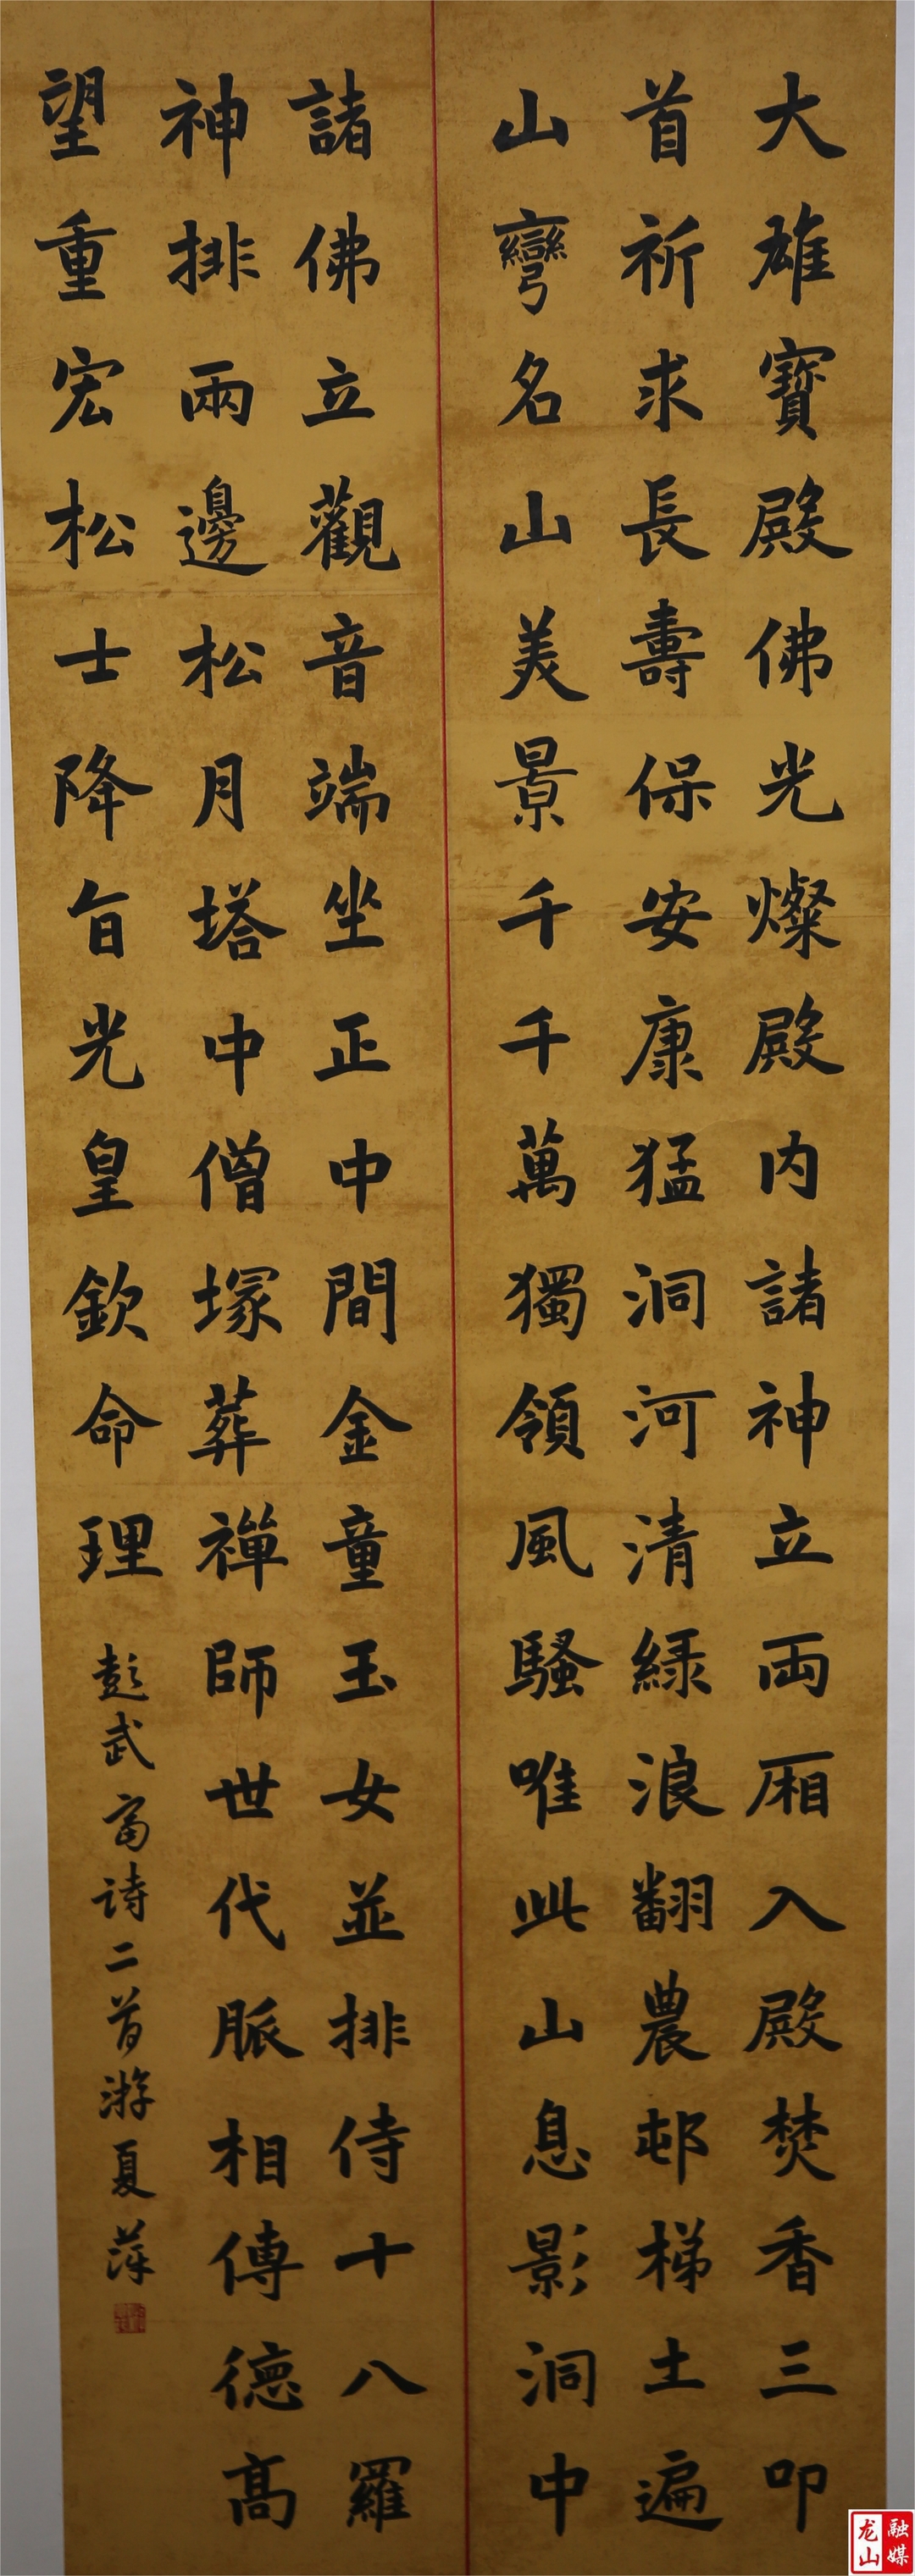 大雄寶殿佛光燦殿内諸神立両厢入殿焚香三叩
首祈求長壽保安康猛洞河清緑浪翻農邨梯土遍
山彎名山美景千千萬獨領風騷唯此山息影洞中
諸佛立觀音端坐正中間金童玉女並排侍十八羅
神排兩邊松月塔中僧塚葬禪師世代脈相傳德高
望重宏松士降旨光皇欽命理
彭武富诗二首游夏萍
龙山融媒